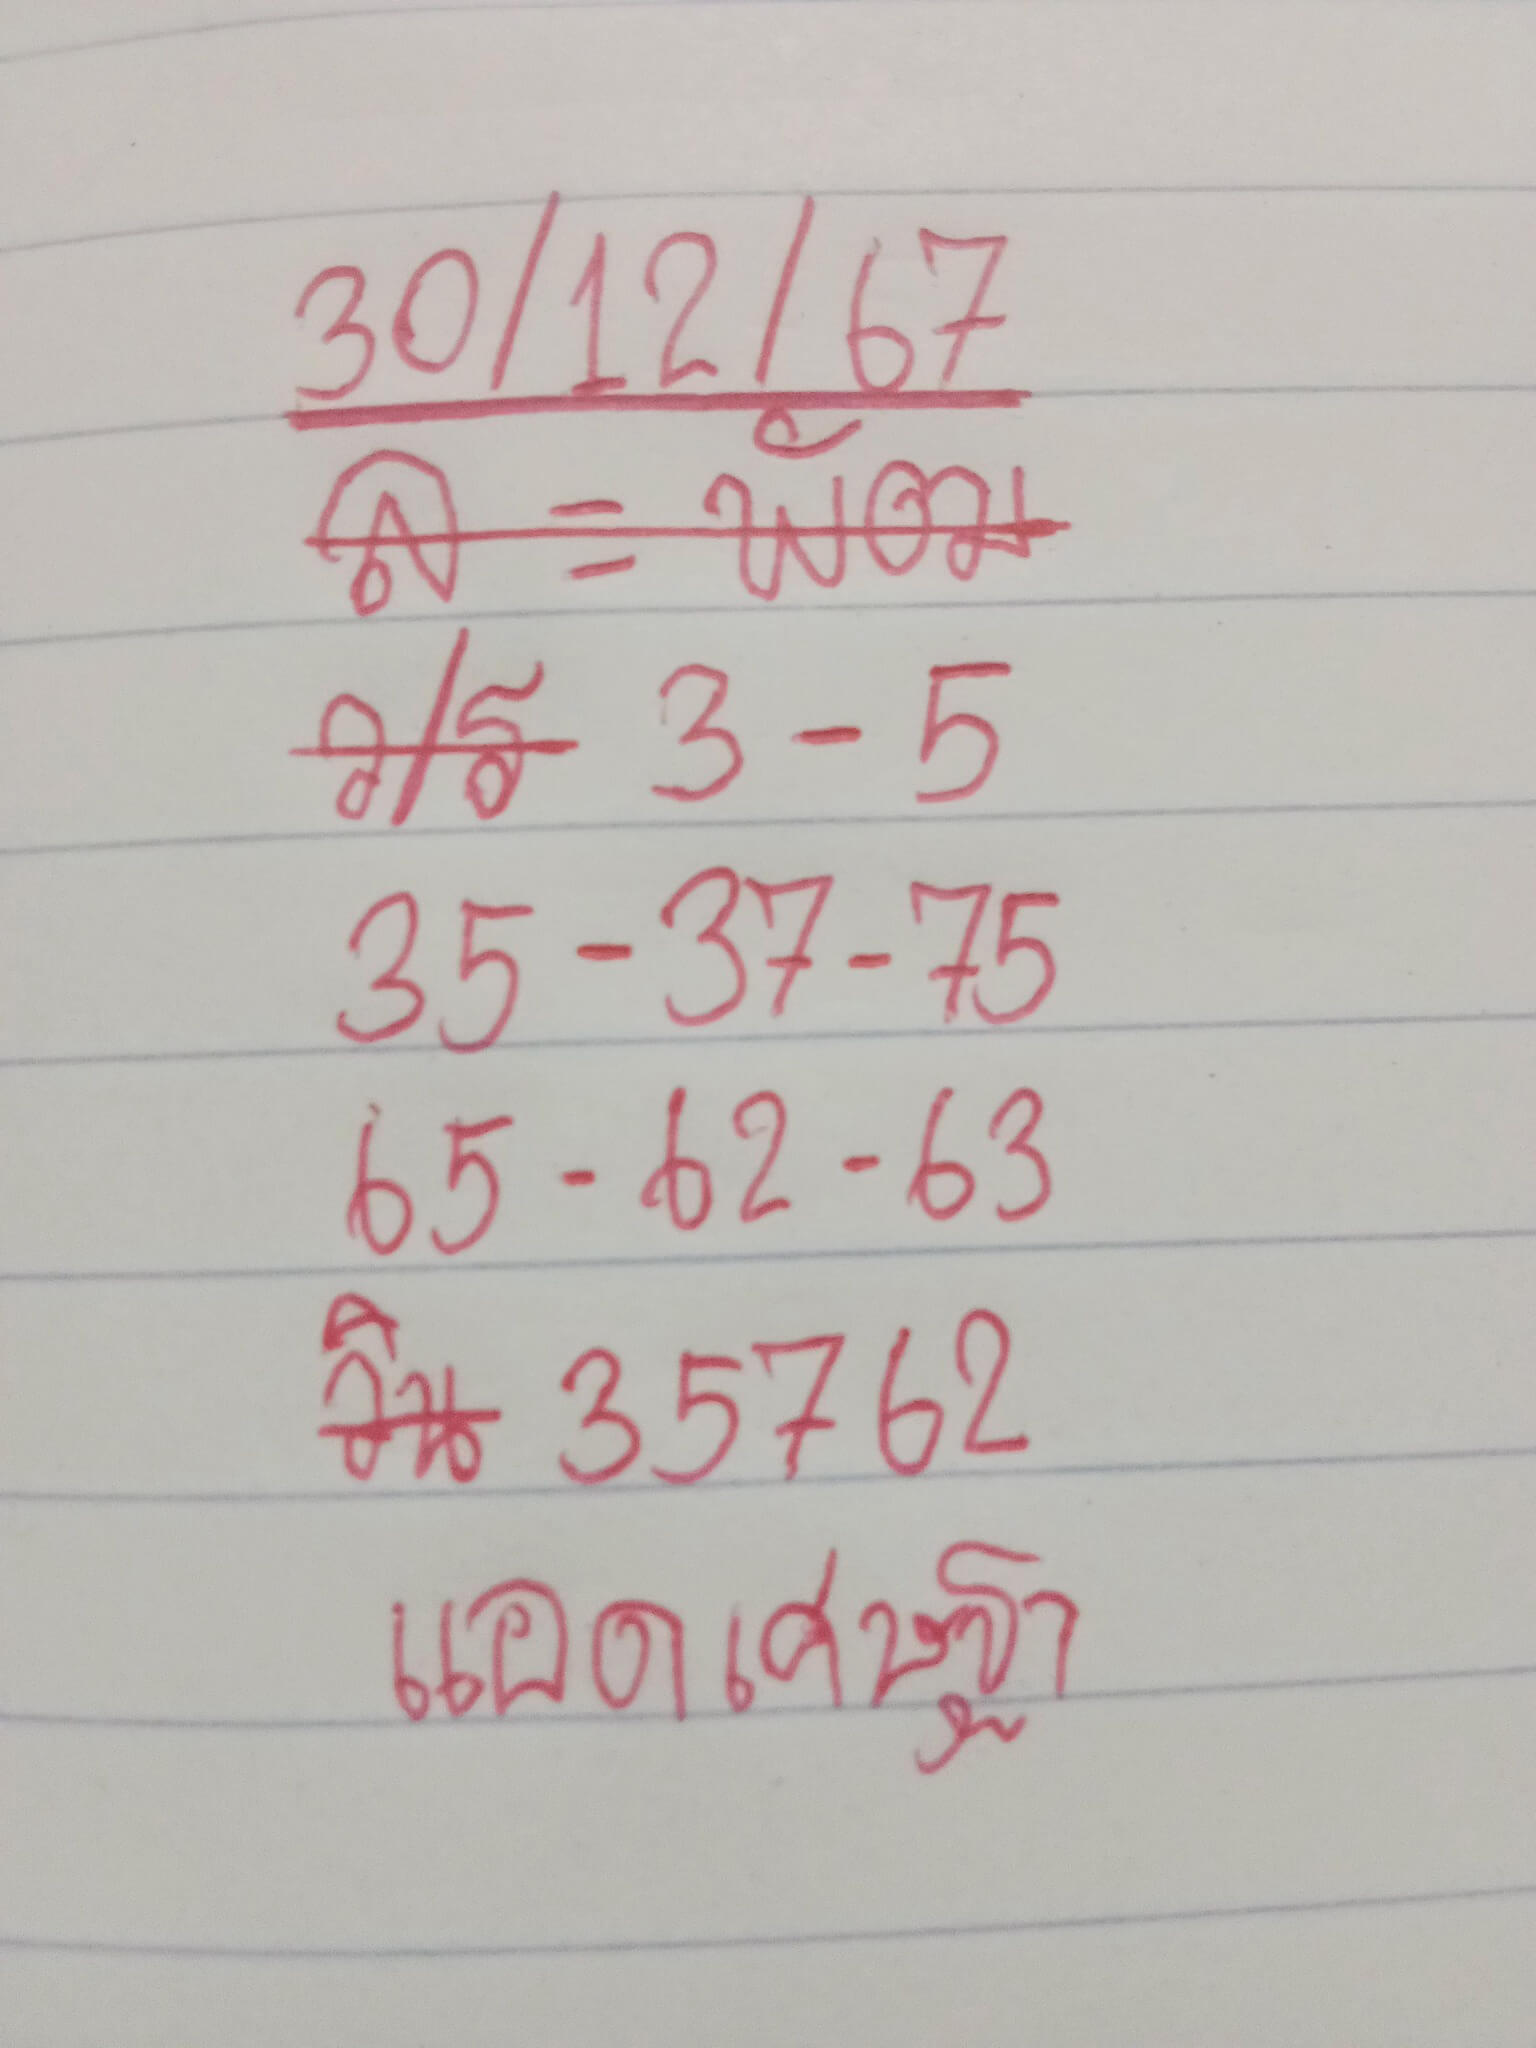 30/12/67
ล = พ้อม
ว/ร 3 - 5
35 - 37 - 75
65 - 62 - 63
วิน 35762
แอดเศษฐา